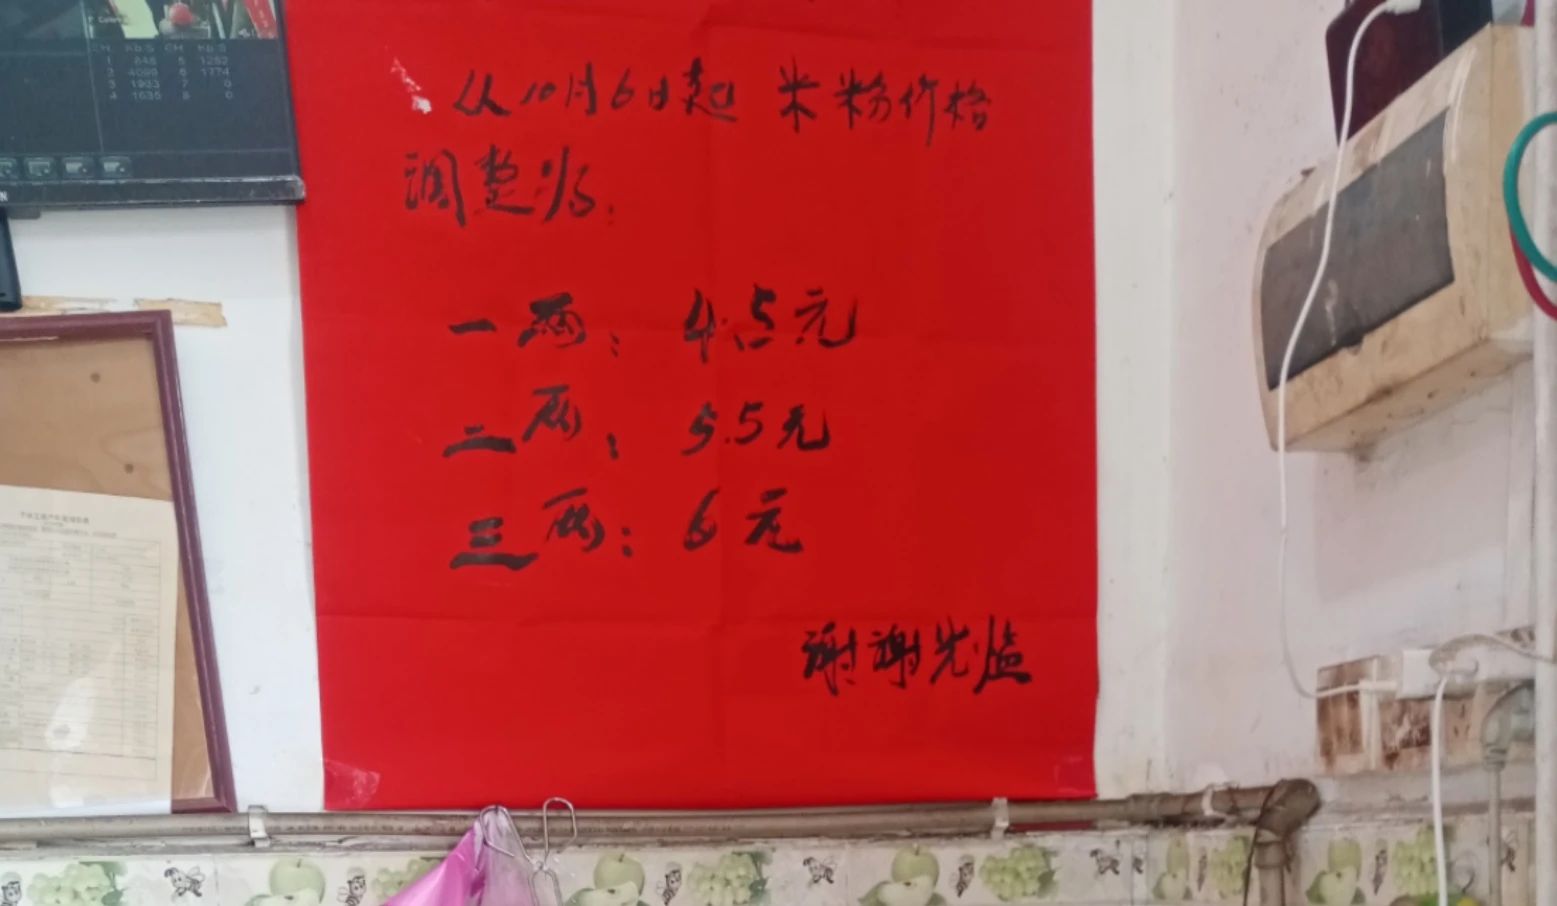 CH Kb/S CH Kb/S
1 848 5 1282
2 4099 6 1774
3 1903 7 0
4 1635 8 0
从10月6日起 米粉价格
调整为:
一两: 4.5元
二两: 5.5元
三两: 6元
谢谢光临